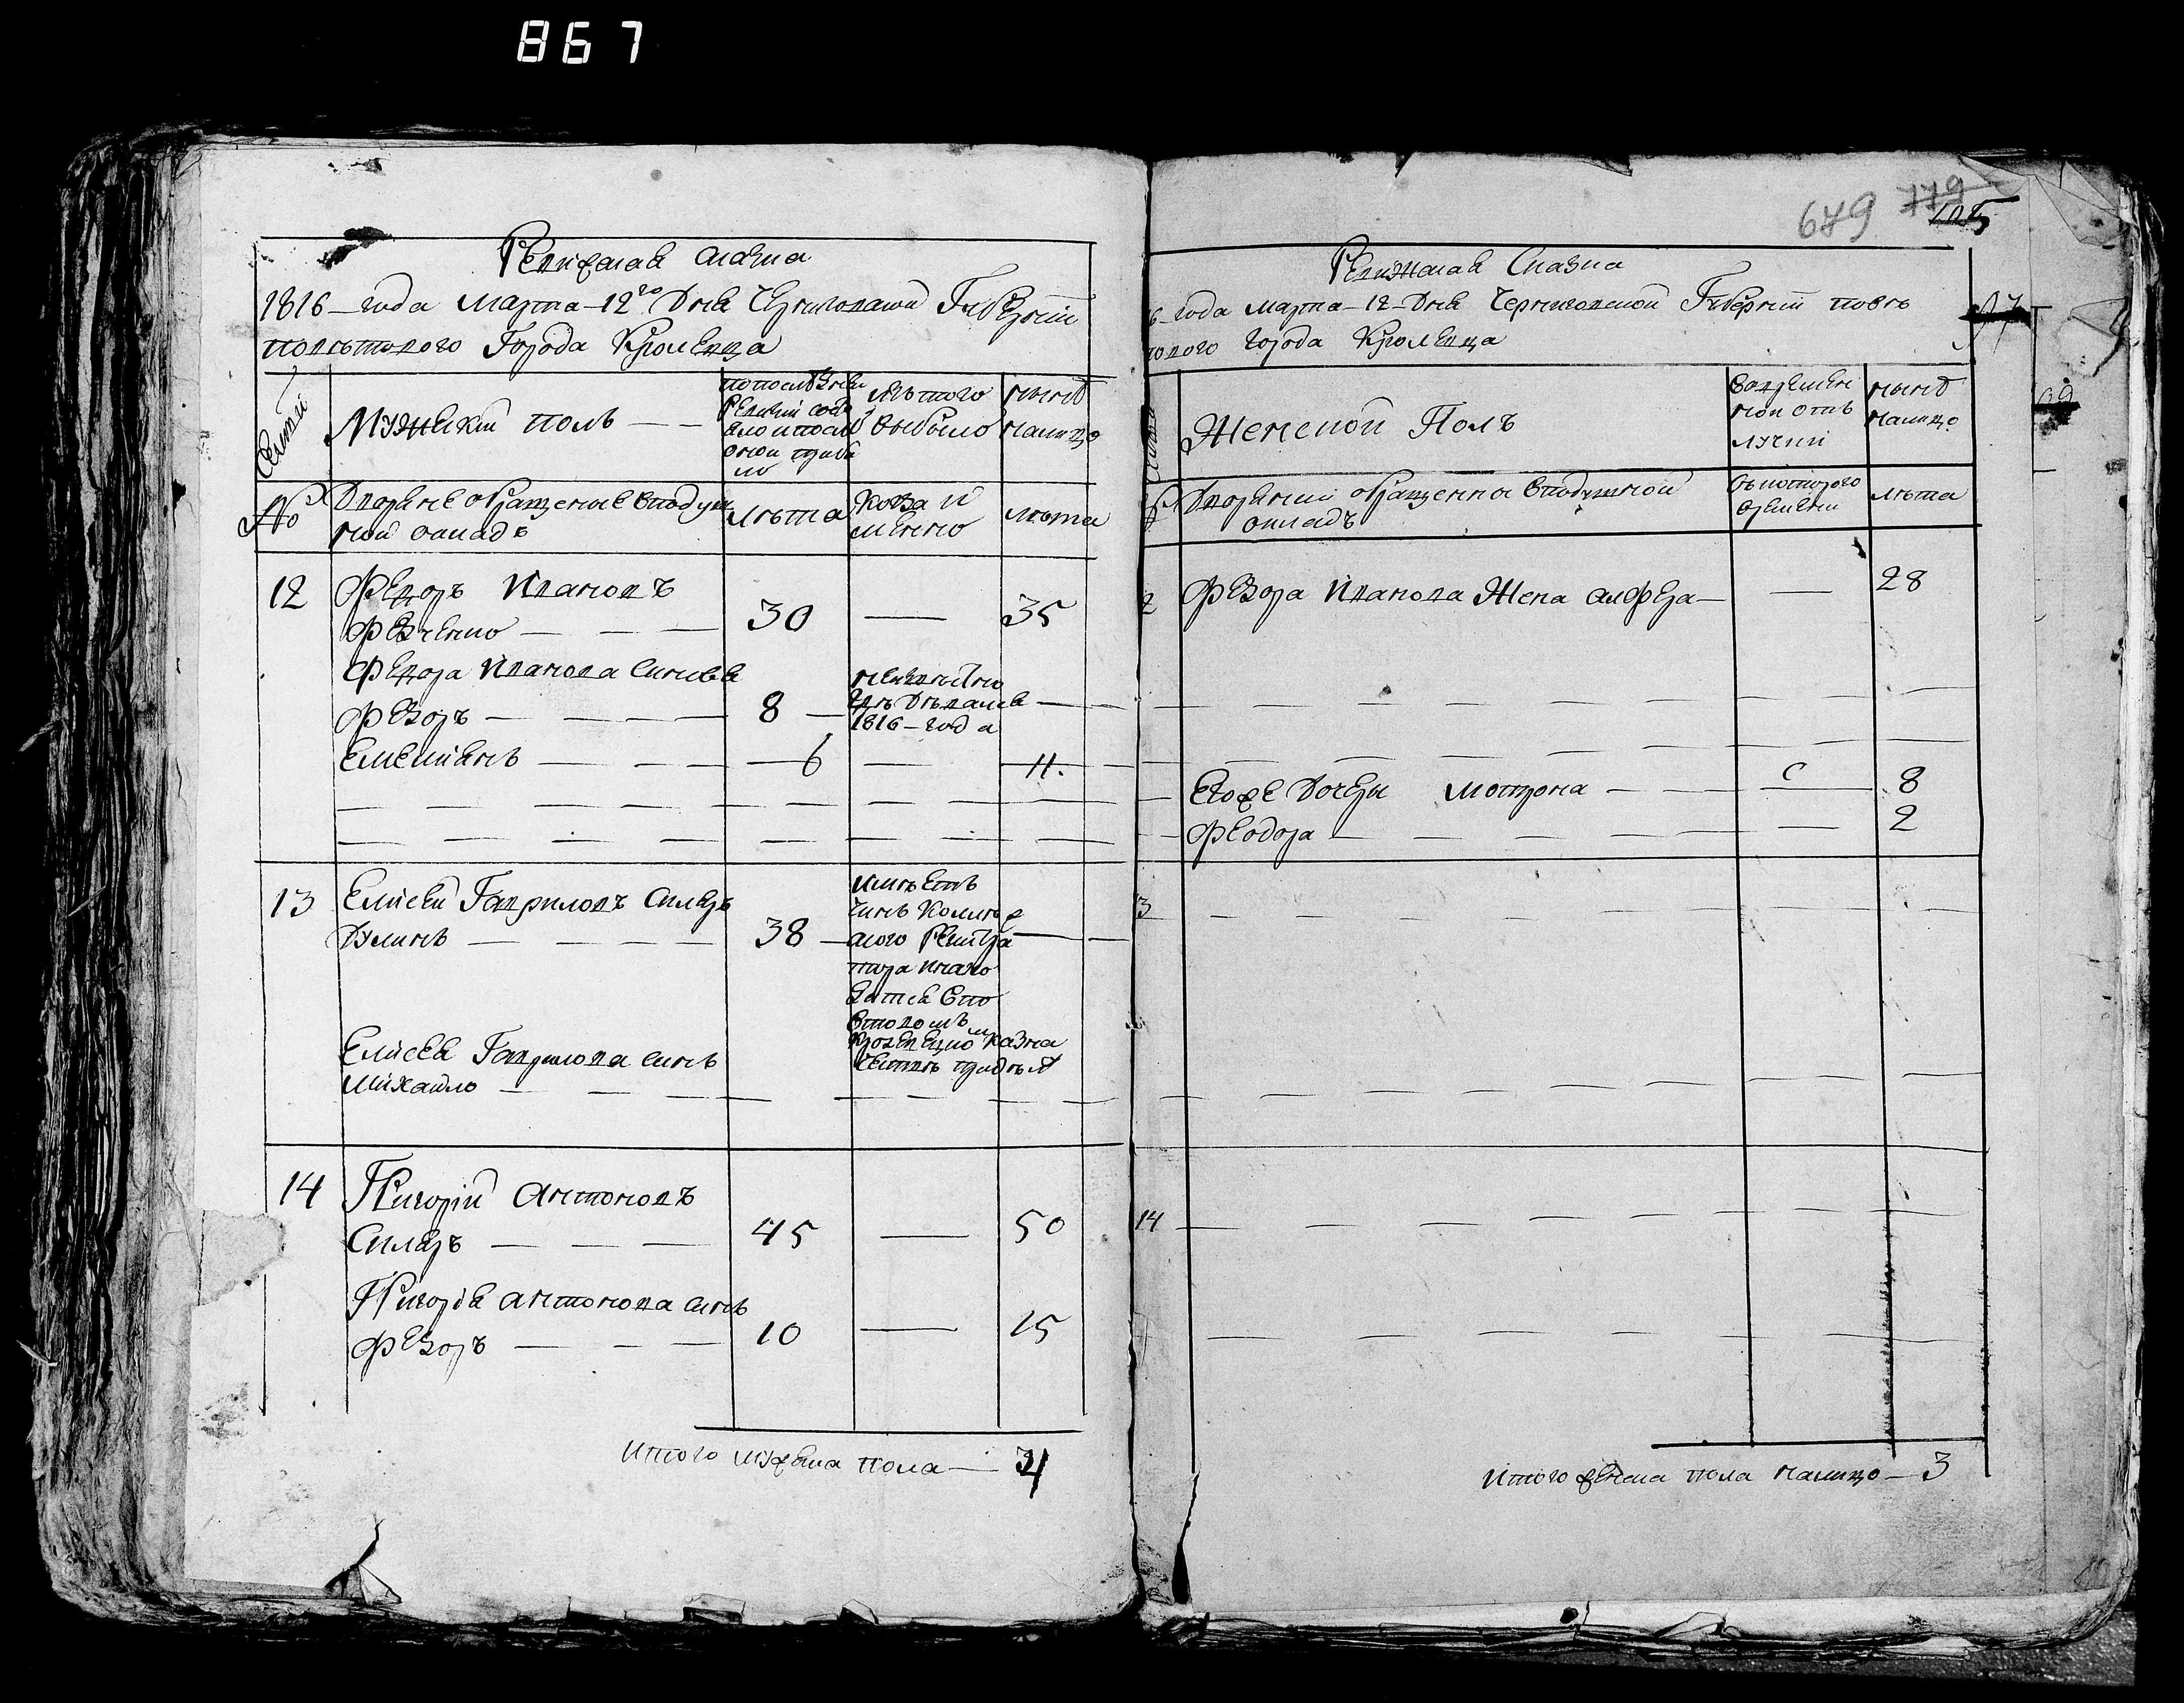 867
679 779 105
Ревижская сказка
1816 года марта 12го дня Черниговской Губернии
поветового города Кролевца
Семей
Мужеский полъ
по последней
ревизии состо
яло и после
оной прибы
ло
изъ того
выбыло
ныне
налицо
№
Дворяне обращенные в подуш
ной окладъ
лета
когда и
менно
лета
12
Федоръ Ивановъ
Федченко
30
35
Федора Ивонова синовя
Федоръ
8
1816 года
Емелиянъ
6
11.
13
Елисей Гавриловъ Скляръ
38
имеетъ
чинъ колиж
ского регистра
тора
Елисея Гаврилова синъ
Михайло
14
Григорий Антоновъ
Скляръ
45
50
Григория Антонова синъ
Федоръ
10
15
Итого мужеска пола 34
Ревижская Сказка
6 года марта 12 дня Черниговской Губернии пове
тового города Кролевца
Женской Полъ
во времен
ной отъ
лучки
ныне
налицо
№
Дворянки обращенны в подушной
окладъ
съ которого
времени
лета
2
Федора Иванова жена
28
Егоже дочеры Мотрона
8
Феодора
2
3
14
Итого женска пола налицо 3